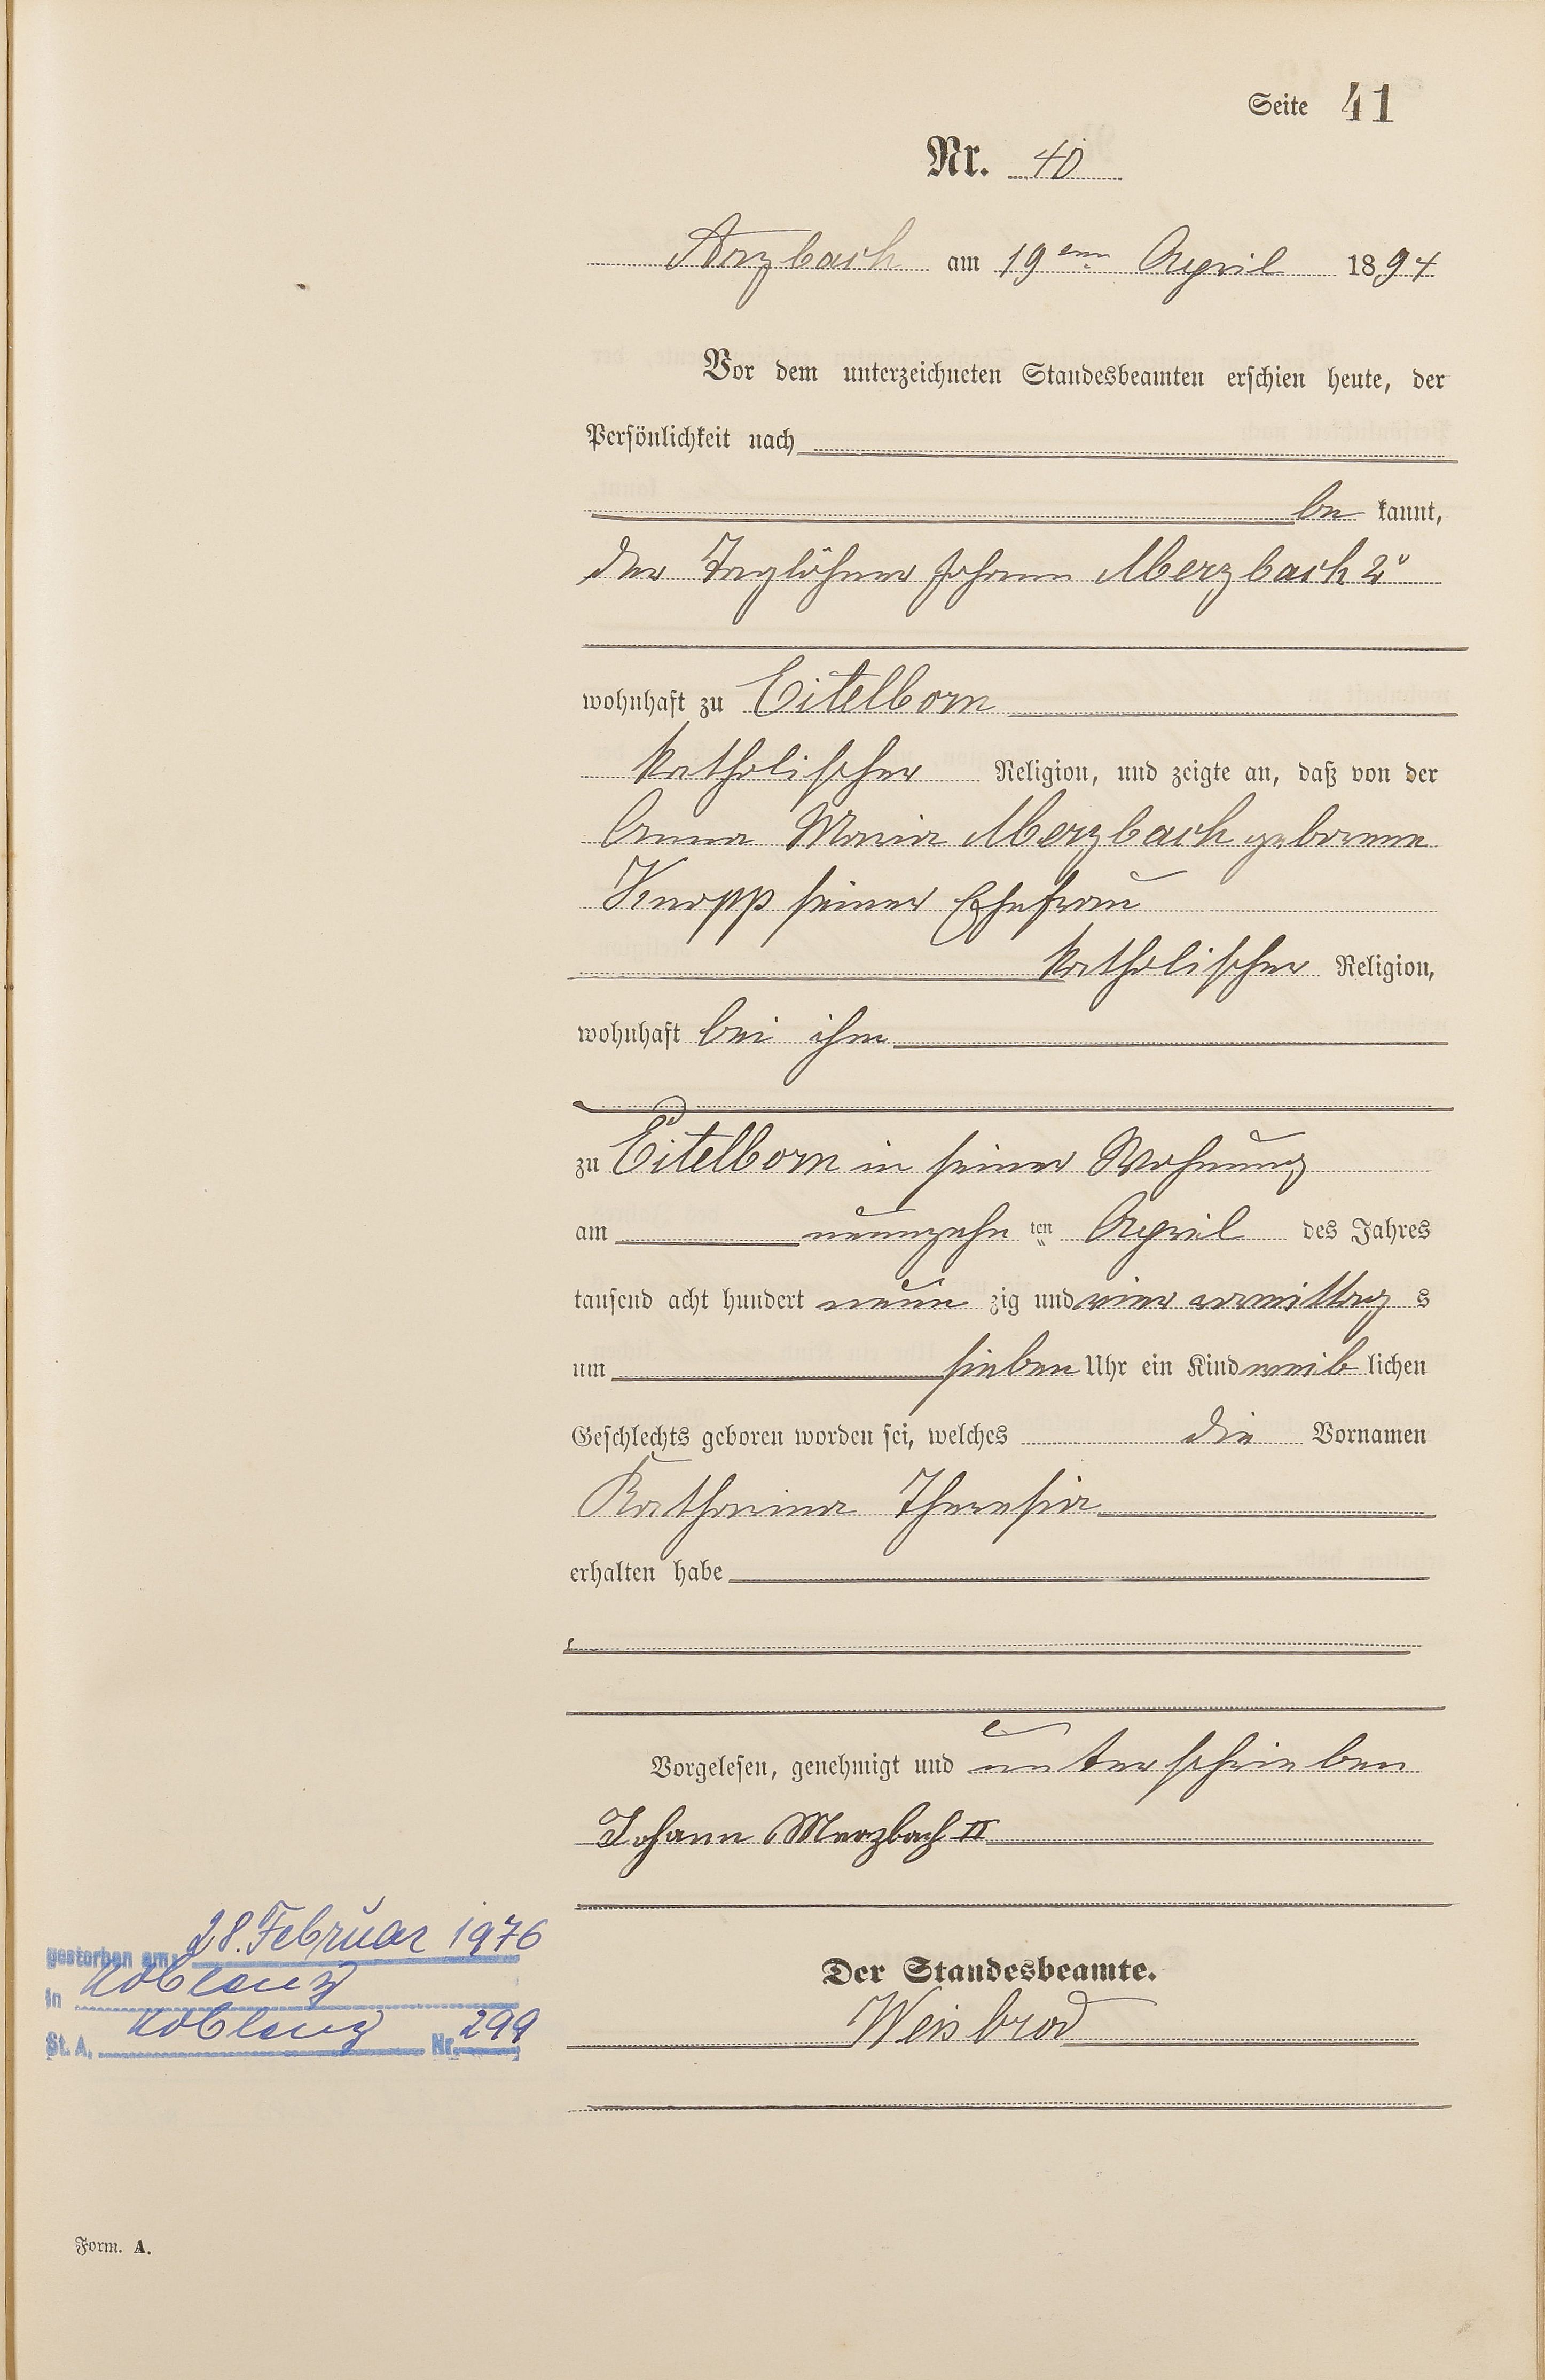 Seite 41
Nr. 40
Arzbach am 19ten April 1894
Vor dem unterzeichneten Standesbeamten erschien heute, der
Persönlichkeit nach
be kannt,
der Taglöhner Johann Merzbach 2r
wohnhaft zu Eitelborn
katholischer Religion, und zeigte an, daß von der
Anna Maria Merzbach geborene
Knopp seiner Ehefrau
katholischer Religion,
wohnhaft bei ihm
zu Eitelborn in seiner Wohnung
am neunzehn ten April des Jahres
tausend acht hundert neun zig und vier vormittag s
um sieben Uhr ein Kind weib lichen
Geschlechts geboren worden sei, welches die Vornamen
Katharina Theresia
erhalten habe
Vorgelesen, genehmigt und unterschrieben
Johann Merzbach II
gestorben am: 28. Februar 1976
in Koblenz
St. A. Koblenz Nr. 299
Der Standesbeamte.
Weisbrod
Form. A.